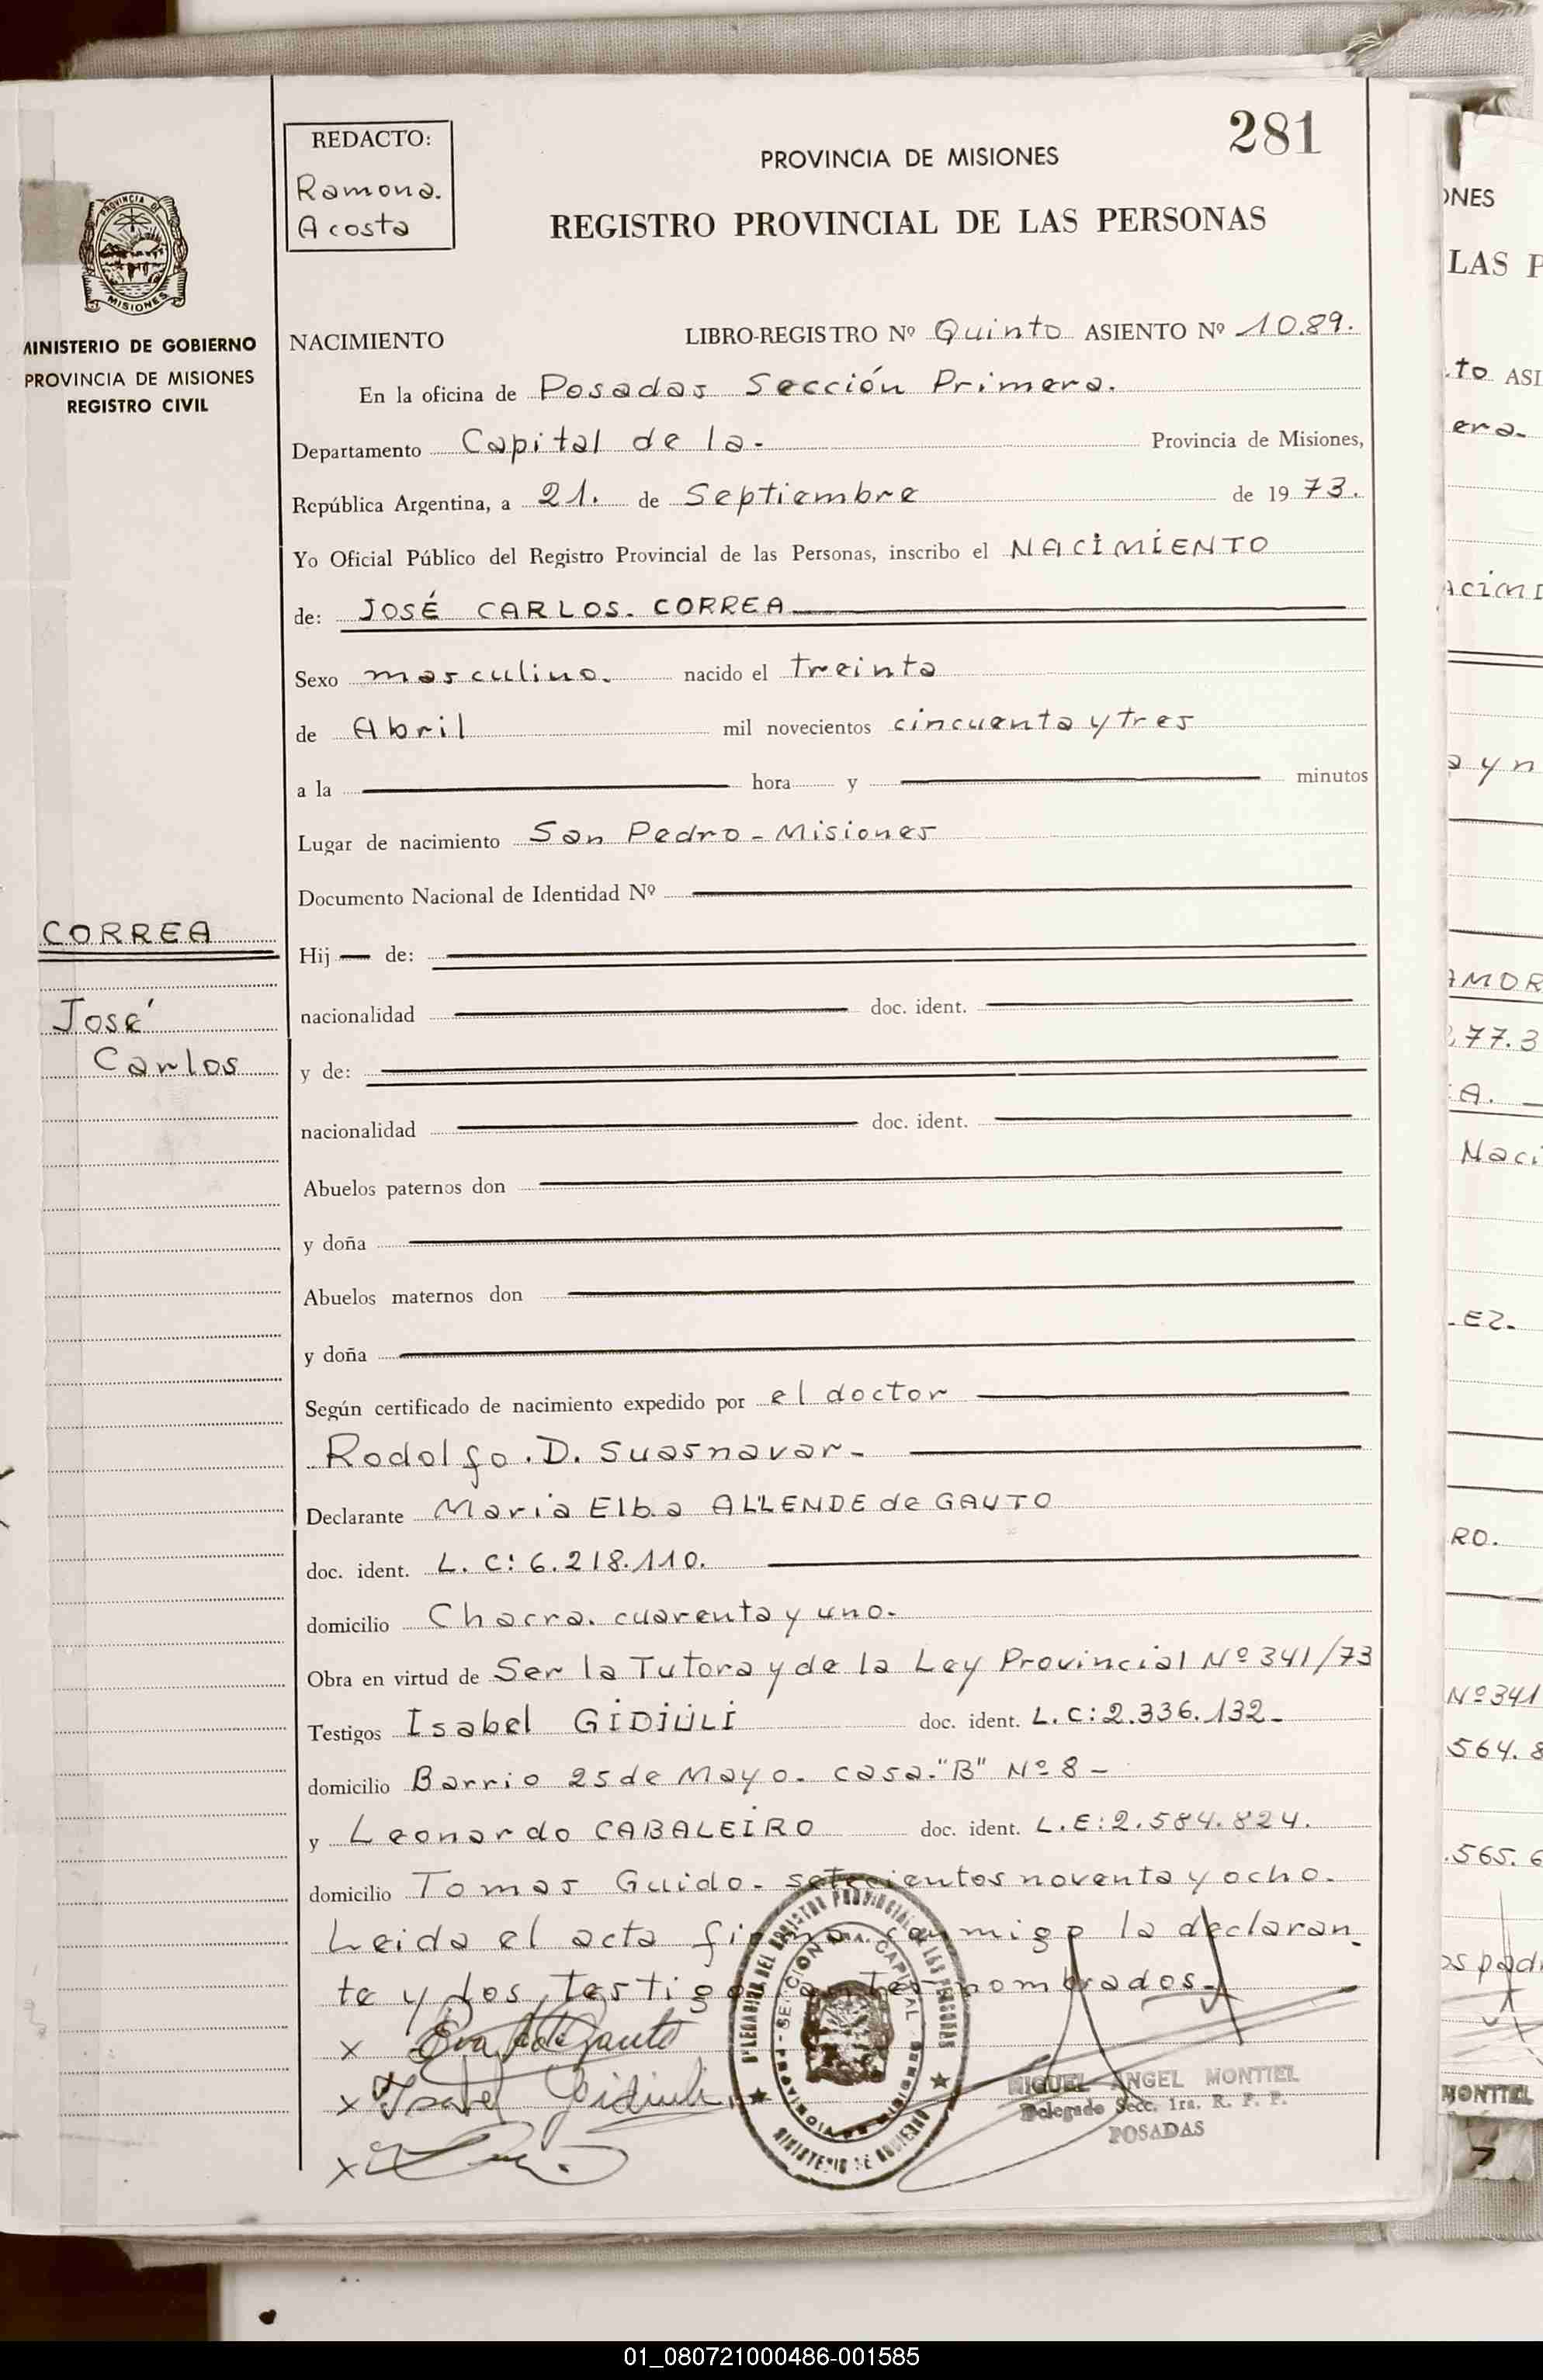 281
REDACTO:
Ramona.
Acosta
PROVINCIA DE MISIONES
REGISTRO PROVINCIAL DE LAS PERSONAS
PROVINCIA DE
MISIONES
MINISTERIO DE GOBIERNO
PROVINCIA DE MISIONES
REGISTRO CIVIL
NACIMIENTO LIBRO-REGISTRO Nº Quinto ASIENTO Nº 1089.
En la oficina de Posadas Sección Primera.
Departamento Capital de la- Provincia de Misiones,
República Argentina, a 21. de Septiembre de 1973.
Yo Oficial Público del Registro Provincial de las Personas, inscribo el NACIMIENTO
de: JOSÉ CARLOS. CORREA
Sexo masculino. nacido el treinta
de Abril mil novecientos cincuenta y tres
a la hora y minutos
Lugar de nacimiento San Pedro - Misiones
Documento Nacional de Identidad Nº
CORREA
José
Carlos
Hij de:
nacionalidad doc. ident.
y de:
nacionalidad doc. ident.
Abuelos paternos don
y doña
Abuelos maternos don
y doña
Según certificado de nacimiento expedido por el doctor
Rodolfo. D. Suasnavar-
Declarante Maria Elba ALLENDE de GAUTO
doc. ident. L. C: 6.218.110.
domicilio Chacra. cuarenta y uno-
Obra en virtud de Ser la Tutora y de la Ley Provincial Nº 341/73
Testigos Isabel GIDIULI doc. ident. L.C: 2.336.132-
domicilio Barrio 25 de Mayo- casa-"B" Nº 8 -
y Leonardo CABALEIRO doc. ident. L.E: 2.584.824.
domicilio Tomas Guido- setecientos noventa y ocho-
Leida el acta firma conmigo la declaran-
te y los testigos antes nombrados-
x
x Isabel Gidiuli
x
DELEGACION DEL REGISTRO PROVINCIAL DE LAS PERSONAS
SECCION 1RA. CAPITAL
PROVINCIA DE MISIONES
MINISTERIO DE GOBIERNO
MIGUEL ANGEL MONTIEL
Delegado Secc. 1ra. R. P. P.
POSADAS
ONES
LAS P
.to ASI
era-
ACIMI
a y n
AMOR
.77.3
A.
Naci
EZ-
RO.
Nº 341
564.8
.565.6
os padr
MONTIEL
01_080721000486-001585